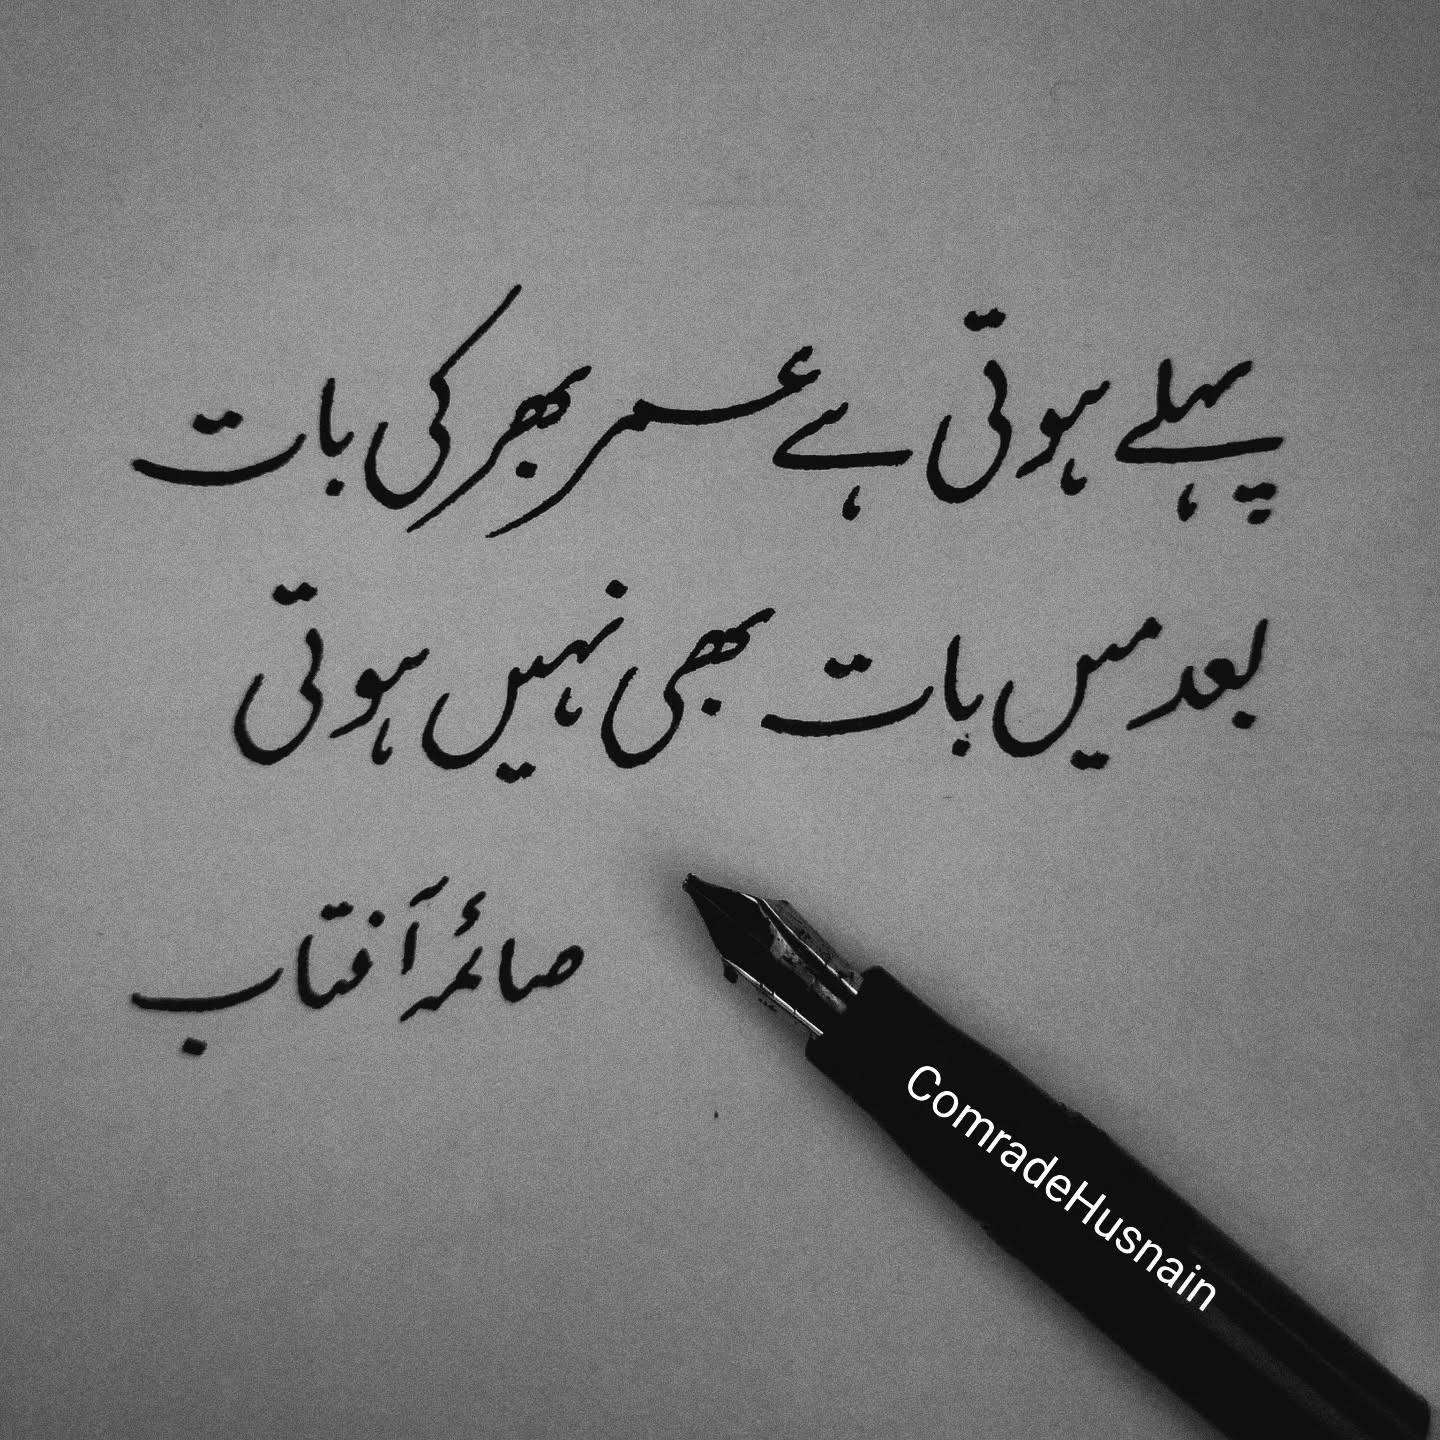 پہلے ہوتی ہے عمر بھر کی بات
بعد میں بات بھی نہیں ہوتی
صائمہ آفتاب
ComradeHusnain